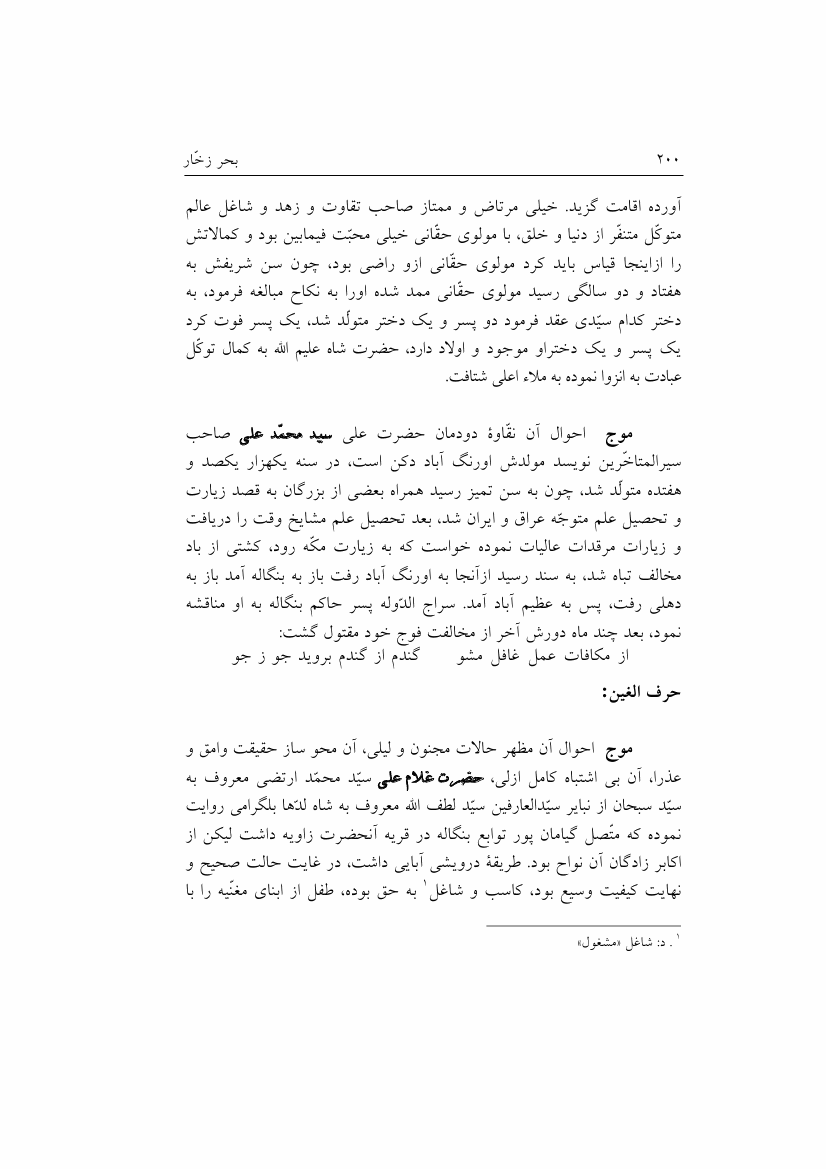 ۲۰۰ بحر زخّار
آورده اقامت گزید. خیلی مرتاض و ممتاز صاحب تقاوت و زهد و شاغل عالم
متوکّل متنفّر از دنیا و خلق، با مولوی حقّانی خیلی محبّت فیمابین بود و کمالاتش
را ازاینجا قیاس باید کرد مولوی حقّانی ازو راضی بود، چون سن شریفش به
هفتاد و دو سالگی رسید مولوی حقّانی ممد شده اورا به نکاح مبالغه فرمود، به
دختر کدام سیّدی عقد فرمود دو پسر و یک دختر متولّد شد، یک پسر فوت کرد
یک پسر و یک دختراو موجود و اولاد دارد، حضرت شاه علیم الله به کمال توکّل
عبادت به انزوا نموده به ملاء اعلی شتافت.
موج احوال آن نقّاوۀ دودمان حضرت علی سید محمّد علی صاحب
سیرالمتاخّرین نویسد مولدش اورنگ آباد دکن است، در سنه یکهزار یکصد و
هفتده متولّد شد، چون به سن تمیز رسید همراه بعضی از بزرگان به قصد زیارت
و تحصیل علم متوجّه عراق و ایران شد، بعد تحصیل علم مشایخ وقت را دریافت
و زیارات مرقدات عالیات نموده خواست که به زیارت مکّه رود، کشتی از باد
مخالف تباه شد، به سند رسید ازآنجا به اورنگ آباد رفت باز به بنگاله آمد باز به
دهلی رفت، پس به عظیم آباد آمد. سراج الدّوله پسر حاکم بنگاله به او مناقشه
نمود، بعد چند ماه دورش آخر از مخالفت فوج خود مقتول گشت:
از مکافات عمل غافل مشو گندم از گندم بروید جو ز جو
حرف الغین:
موج احوال آن مظهر حالات مجنون و لیلی، آن محو ساز حقیقت وامق و
عذرا، آن بی اشتباه کامل ازلی، حضرت غلام علی سیّد محمّد ارتضی معروف به
سیّد سبحان از نبایر سیّدالعارفین سیّد لطف الله معروف به شاه لدّها بلگرامی روایت
نموده که متّصل گیامان پور توابع بنگاله در قریه آنحضرت زاویه داشت لیکن از
اکابر زادگان آن نواح بود. طریقۀ درویشی آبایی داشت، در غایت حالت صحیح و
نهایت کیفیت وسیع بود، کاسب و شاغل۱ به حق بوده، طفل از ابنای مغنّیه را با
۱ . د: شاغل «مشغول»